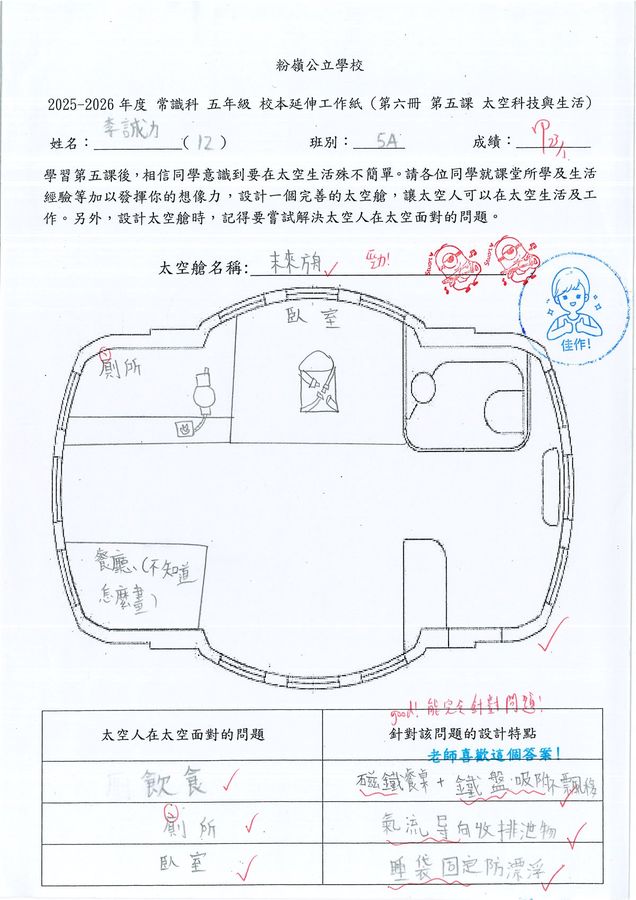 粉嶺公立學校
2025-2026 年度 常識科 五年級 校本延伸工作紙 (第六冊 第五課 太空科技與生活)
姓名：李誠力(12) 班別：5A 成績：甲 23/1
學習第五課後，相信同學意識到要在太空生活殊不簡單。請各位同學就課堂所學及生活
經驗等加以發揮你的想像力，設計一個完善的太空艙，讓太空人可以在太空生活及工
作。另外，設計太空艙時，記得要嘗試解決太空人在太空面對的問題。
太空艙名稱：未來方舟 勁!
佳作!
臥室
廁所
餐廳、(不知道
怎麼畫)
good! 能完全針對問題!
太空人在太空面對的問題 針對該問題的設計特點
老師喜歡這個答案!
飲食 磁鐵餐桌 + 鐵盤‧吸附
廁所 氣流导向收排泄物
臥室 睡袋固定防漂浮